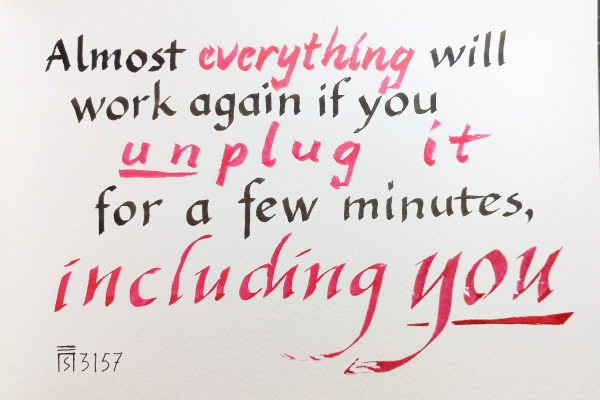 Almost everything will
work again if you
unplug it
for a few minutes,
including you
3157